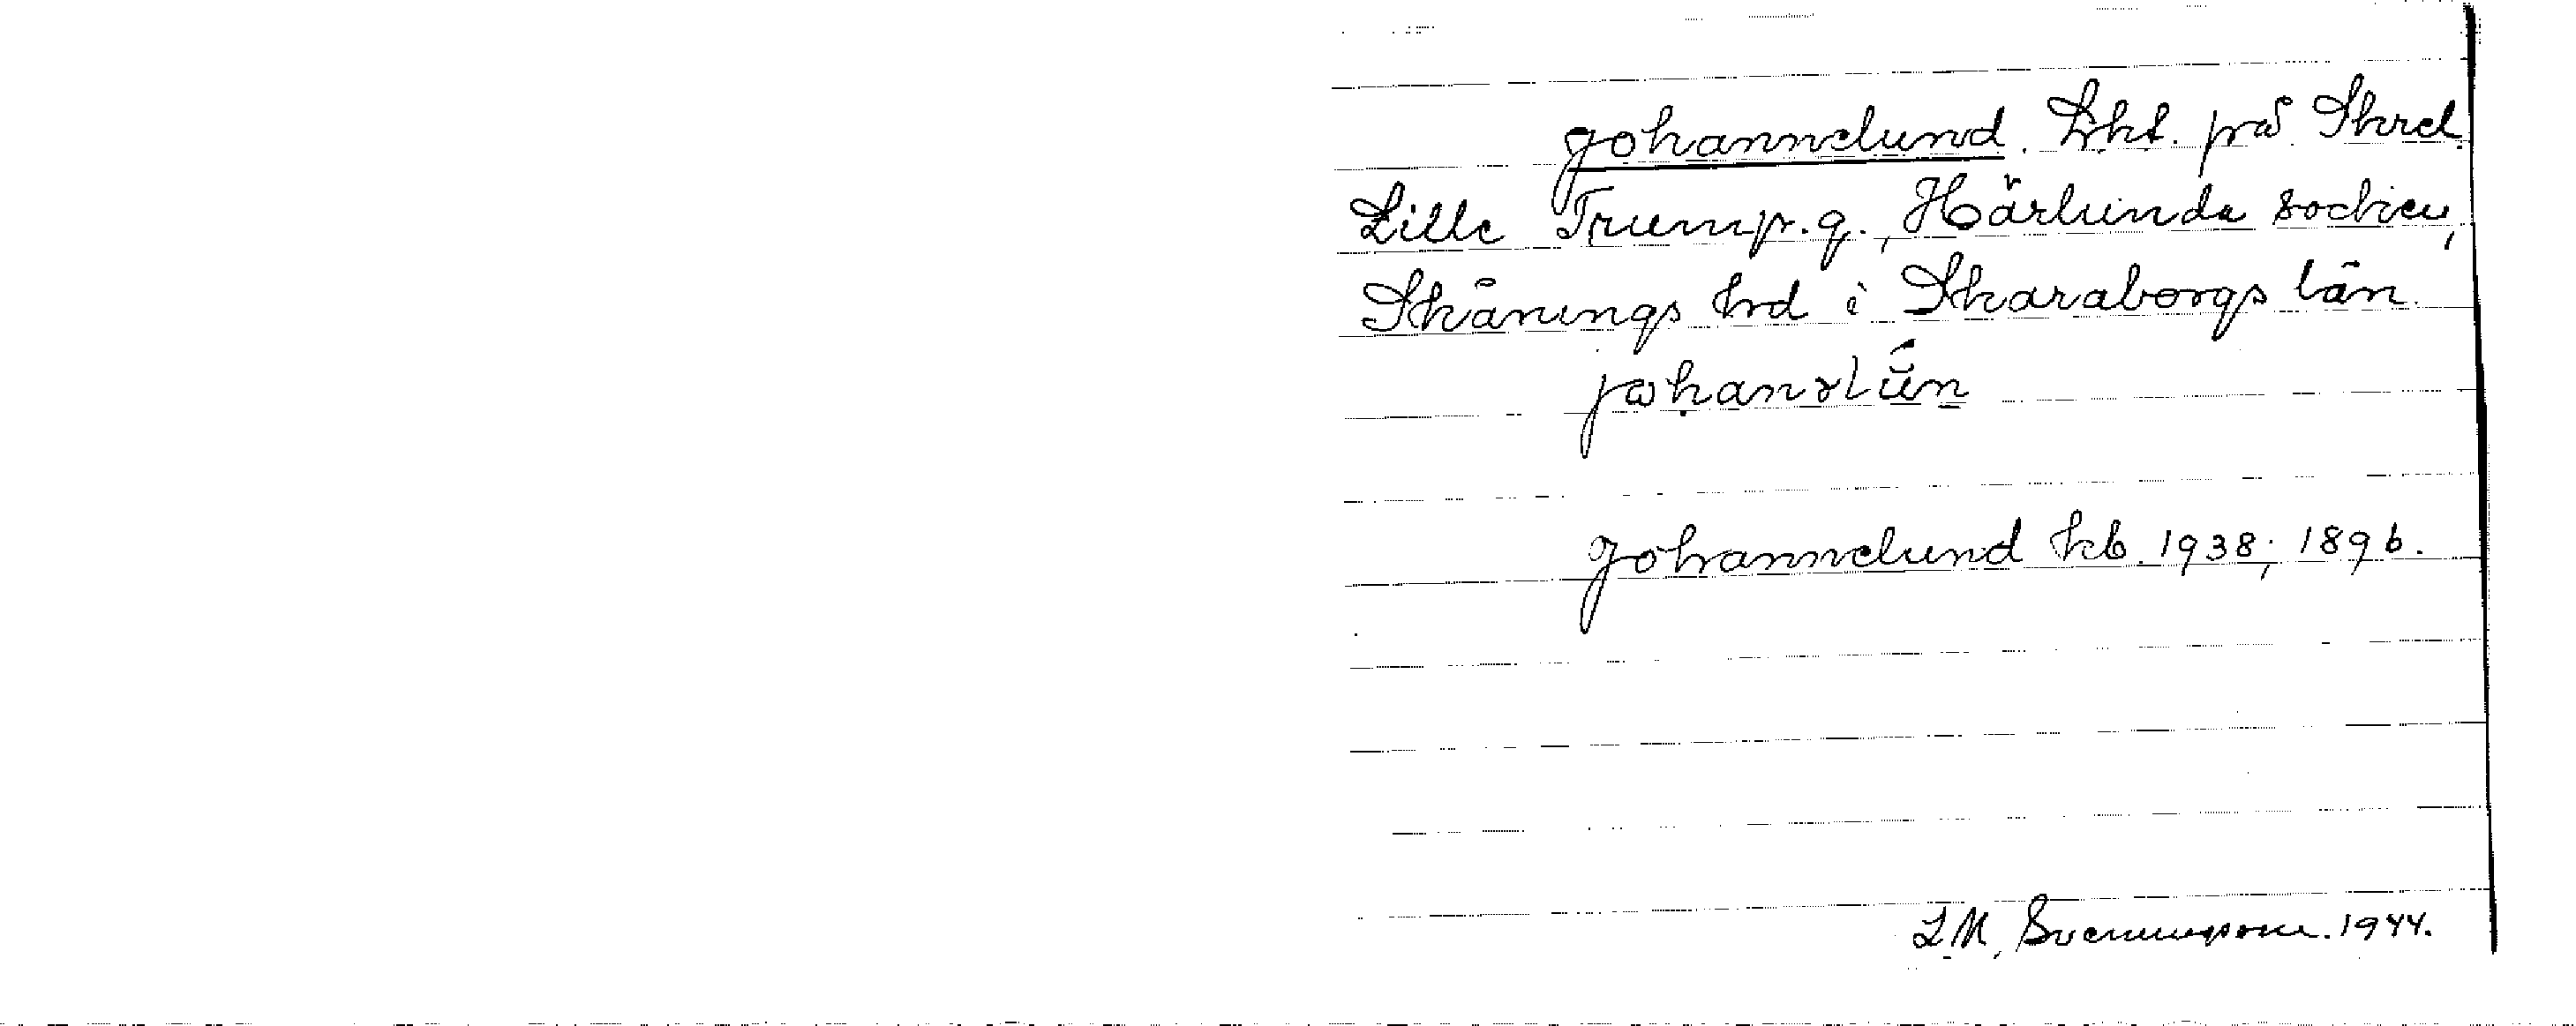 Johannelund. Lht. på Skrel.
Lille Trump.g., Härlunda socken,
Skånings hrd i Skaraborgs län.
Johannelund kb. 1938; 1896.
L.M. Svenungsson. 1944.